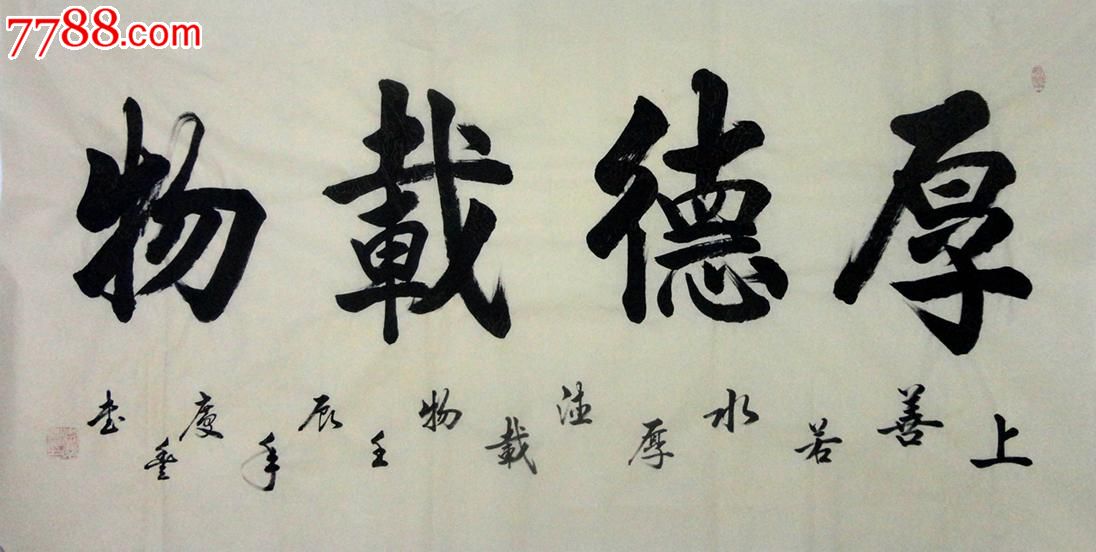 7788.com
厚德載物
上善若水厚德載物壬辰年慶豐书